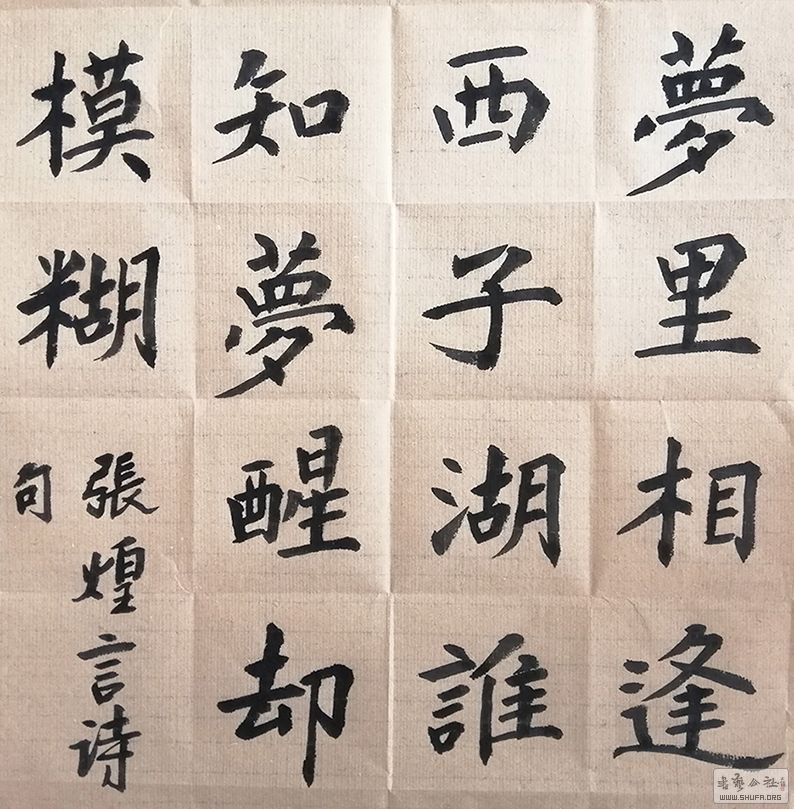 夢里相逢
西子湖誰
知夢醒却
模糊
張煌言诗
句
書藝公社
WWW.SHUFA.ORG